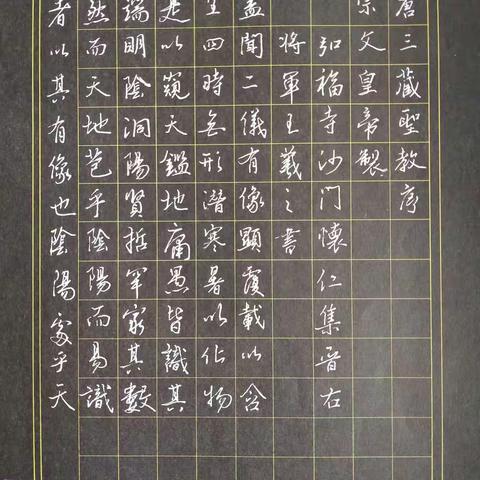 唐三藏聖教序
宗文皇帝製
弘福寺沙門懷仁集晉右
將軍王羲之書
盖聞二儀有像顯覆載以含
生四時無形潛寒暑以化物
是以窺天鑑地庸愚皆識其
端明陰洞陽賢哲罕窮其數
然而天地苞乎陰陽而易識
者以其有像也陰陽處乎天